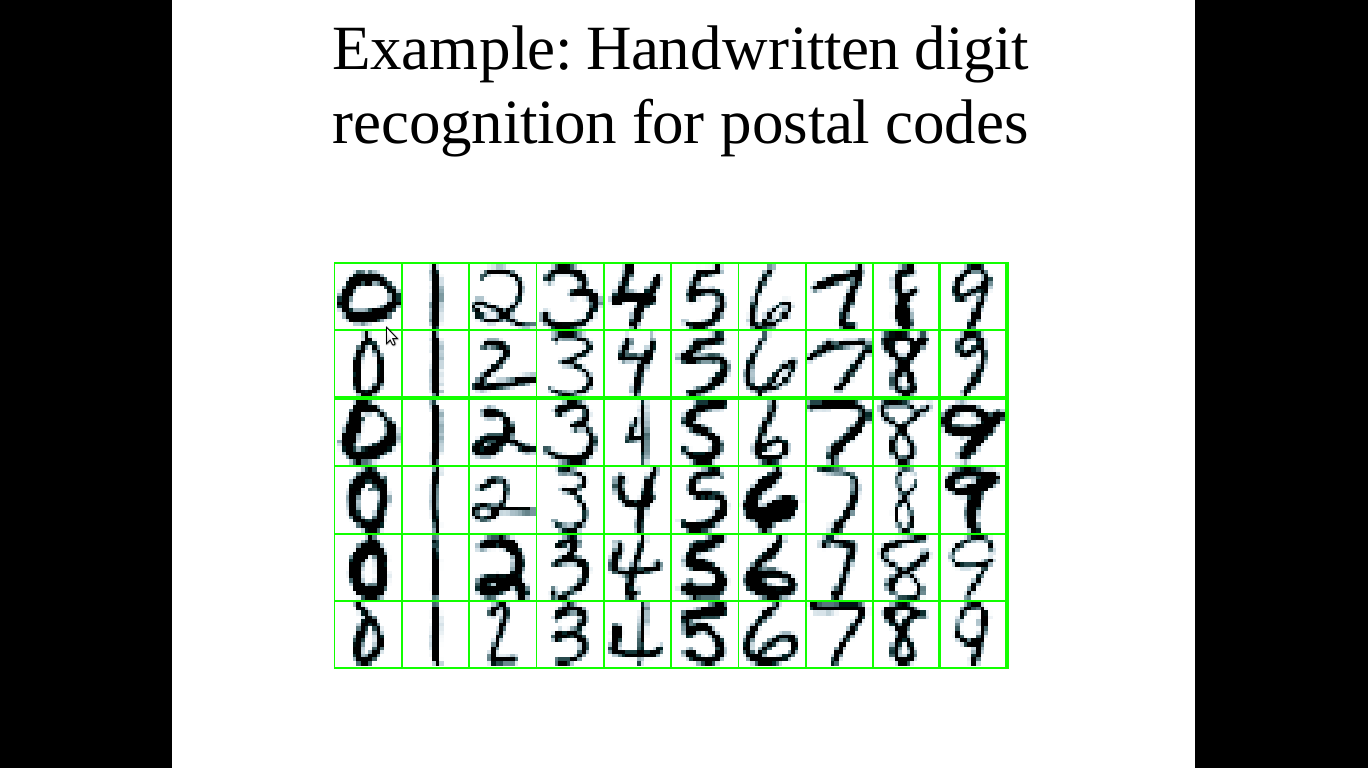 Example: Handwritten digit
recognition for postal codes
0 1 2 3 4 5 6 7 8 9
0 1 2 3 4 5 6 7 8 9
0 1 2 3 4 5 6 7 8 9
0 1 2 3 4 5 6 7 8 9
0 1 2 3 4 5 6 7 8 9
0 1 2 3 4 5 6 7 8 9